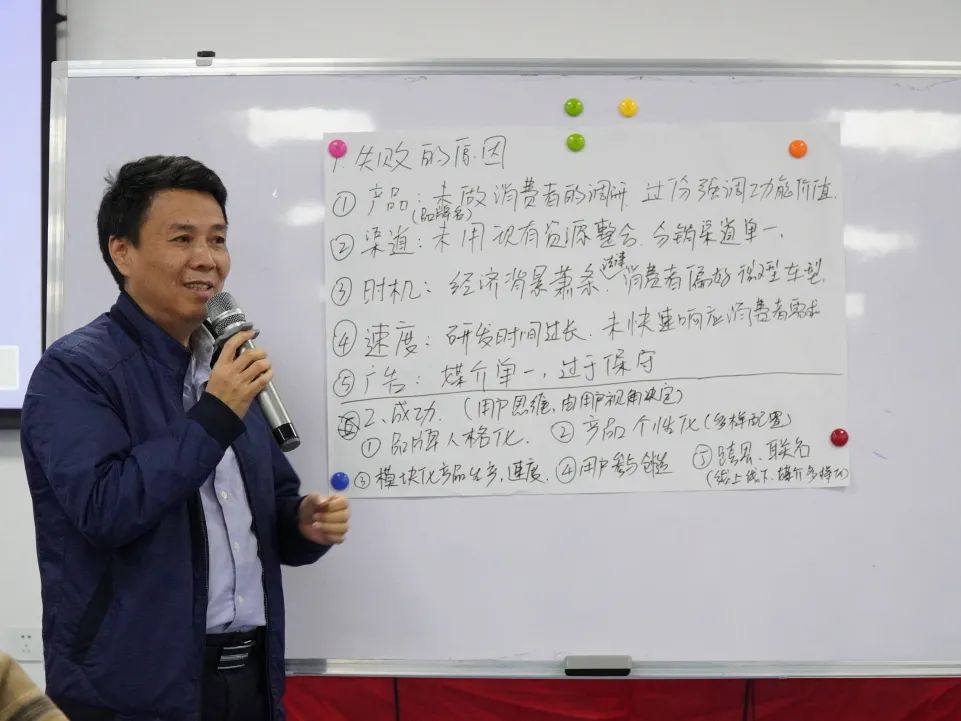 1. 失败的原因
① 产品：未做消费者的调研 过份强调功能价值.
(品牌名)
② 渠道：未用现有资源整合. 分销渠道单一.
③ 时机：经济背景萧条. 法律 消费者偏好微型车型.
④ 速度：研发时间过长. 未快速响应消费者需求
⑤ 广告：媒介单一，过于保守
2、成功. (用户思维、由用户视角决定)
① 品牌人格化. ② 产品个性化(多样配置)
③ 模块化产品生产、速度. ④ 用户参与创造 ⑤ 跨界、联名
(线上线下、媒介多样化)